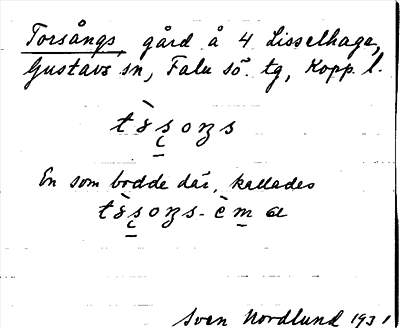 Torsångs, gård å 4 Lisselhage,
Gustavs sn, Falu sö. tg, Kopp. l.
En som bodde där, kallades
Sven Nordlund 1931